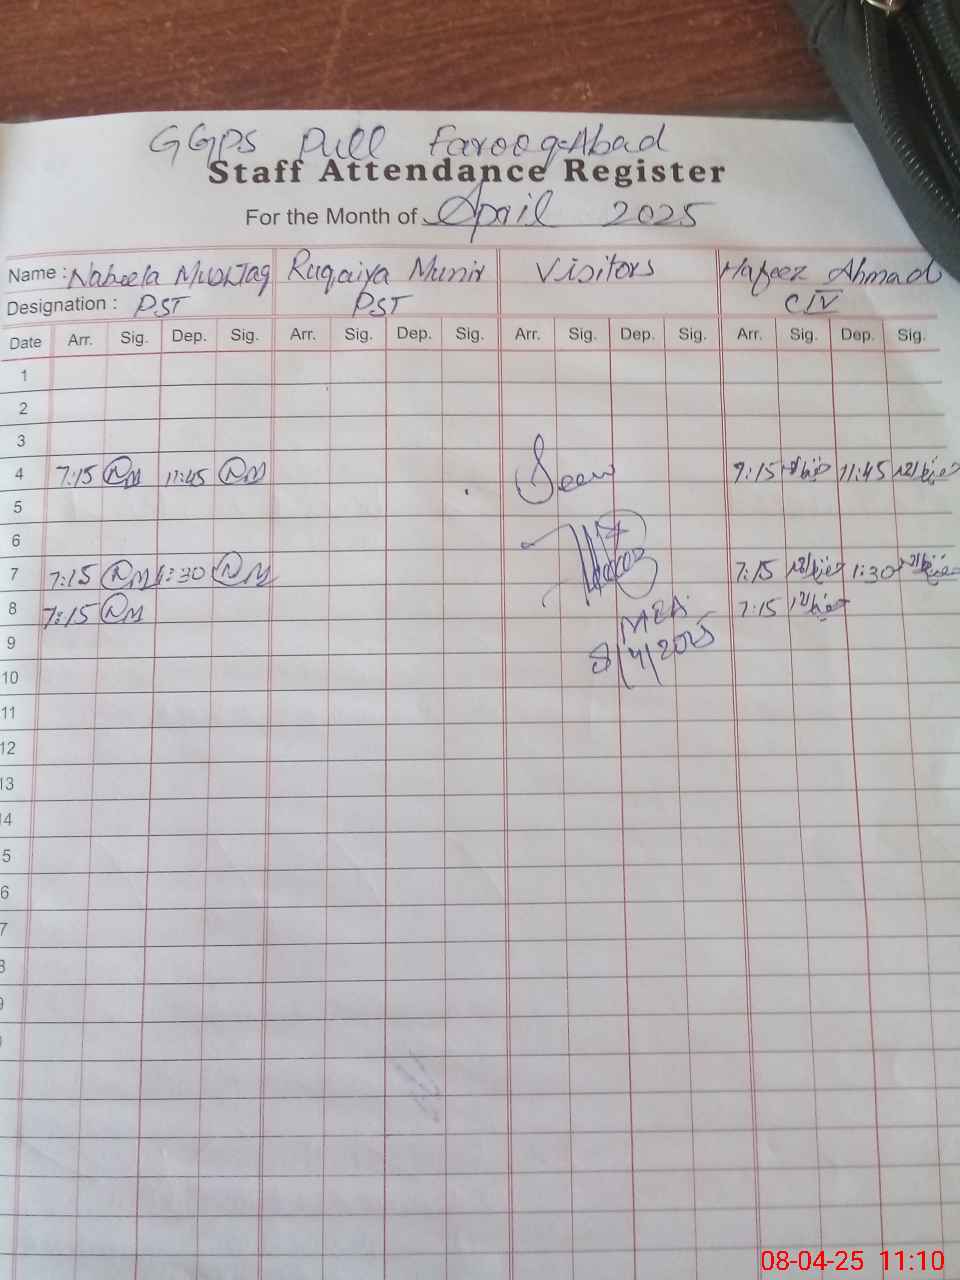 GGPS Pull Farooq-Abad
Staff Attendance Register
For the Month of April 2025
Name : Nabeela Mushtaq Ruqaiya Munir Visitors Hafeez Ahmad
Designation : PST PST C IV
Date Arr. Sig. Dep. Sig. Arr. Sig. Dep. Sig. Arr. Sig. Dep. Sig. Arr. Sig. Dep. Sig.
1
2
3
4 7:15 NM 11:45 NM Seen 7:15 11:45
5
6
7 7:15 NM 1:30 NM 7:15 1:30
8 7:15 NM MEA 7:15
9 8/4/2025
10
11
12
13
14
5
6
7
8
9
08-04-25 11:10